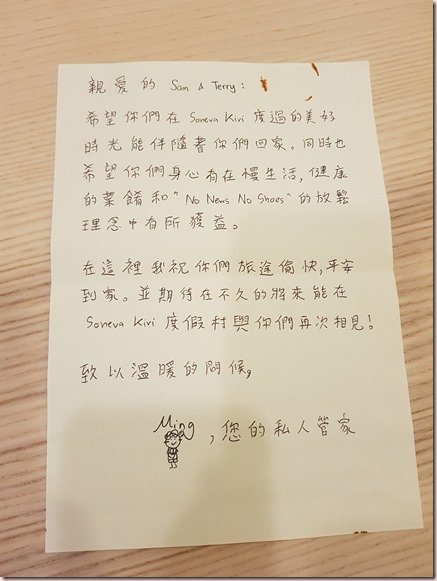 親愛的 Sam & Terry:
希望你們在 Soneva Kiri 度過的美好
時光能伴隨著你們回家。同時也
希望你們身心有在慢生活,健康
的菜餚和"No News No Shoes"的放鬆
理念中有所獲益。
在這裡我祝你們旅途愉快,平安
到家。並期待在不久的將來能在
Soneva Kiri 度假村與你們再次相見!
致以溫暖的問候,
Ming
,您的私人管家